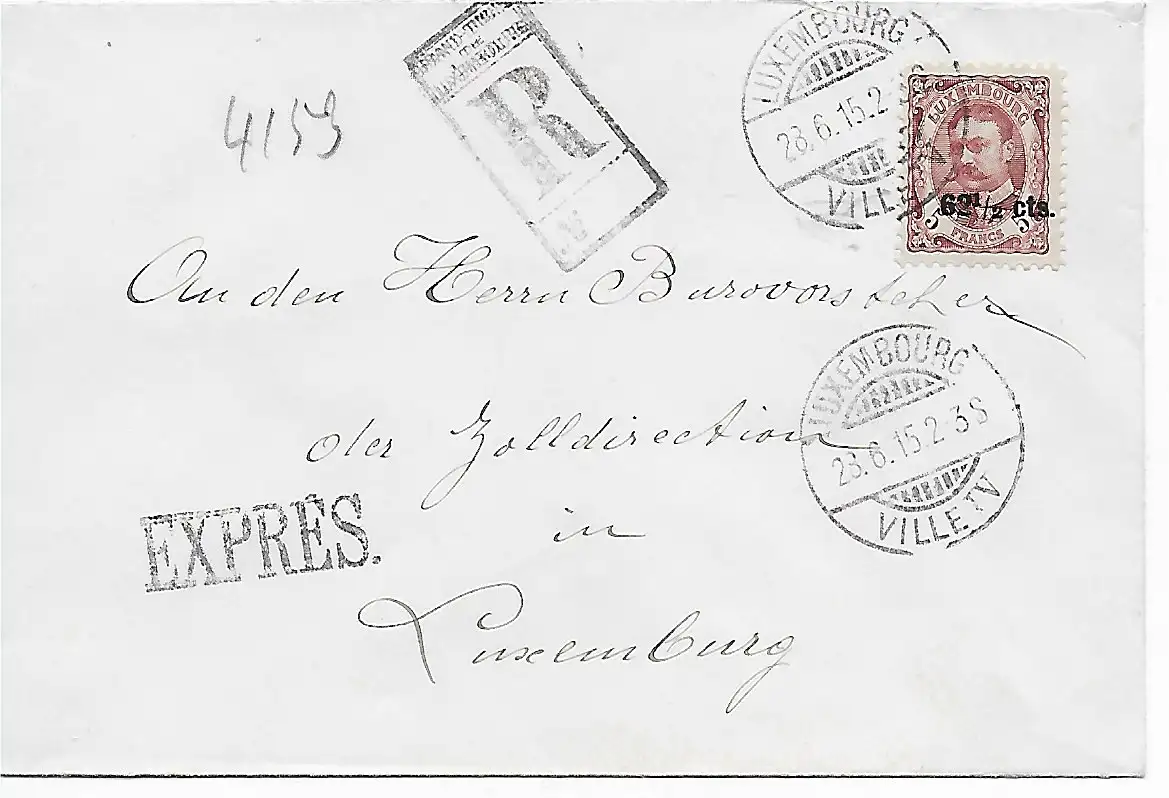 4153
R
LUXEMBOURG
28.6.15.2
VILLE
LUXEMBOURG
5 62 1/2 cts. 5
FRANCS
An den Herrn Burovorsteher
der Zolldirection
in
Luxemburg
LUXEMBOURG
28.6.15.2-3S
VILLE IV
EXPRÈS.